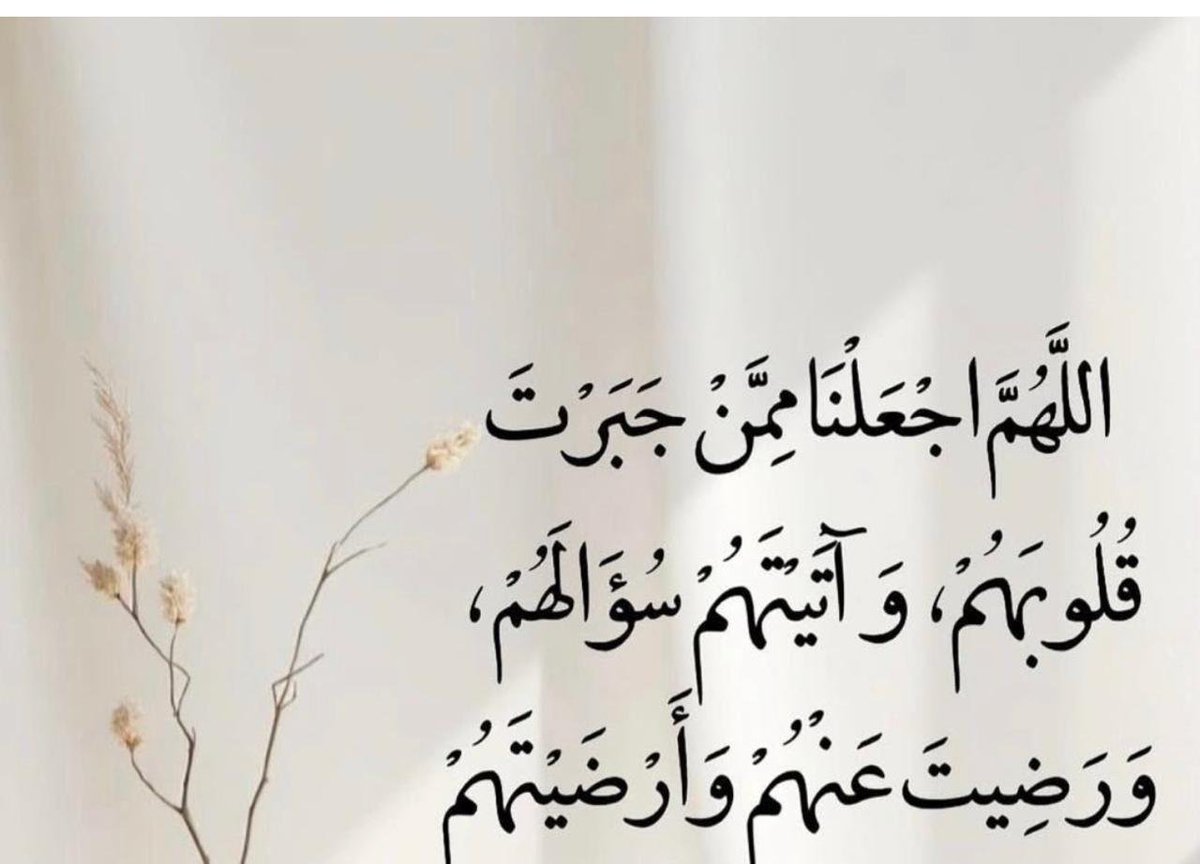 اللَّهُمَّ اجْعَلْنَا مِمَّنْ جَبَرْتَ
قُلُوبَهُمْ، وَآتَيْتَهُمْ سُؤَالَهُمْ،
وَرَضِيتَ عَنْهُمْ وَأَرْضَيْتَهُمْ